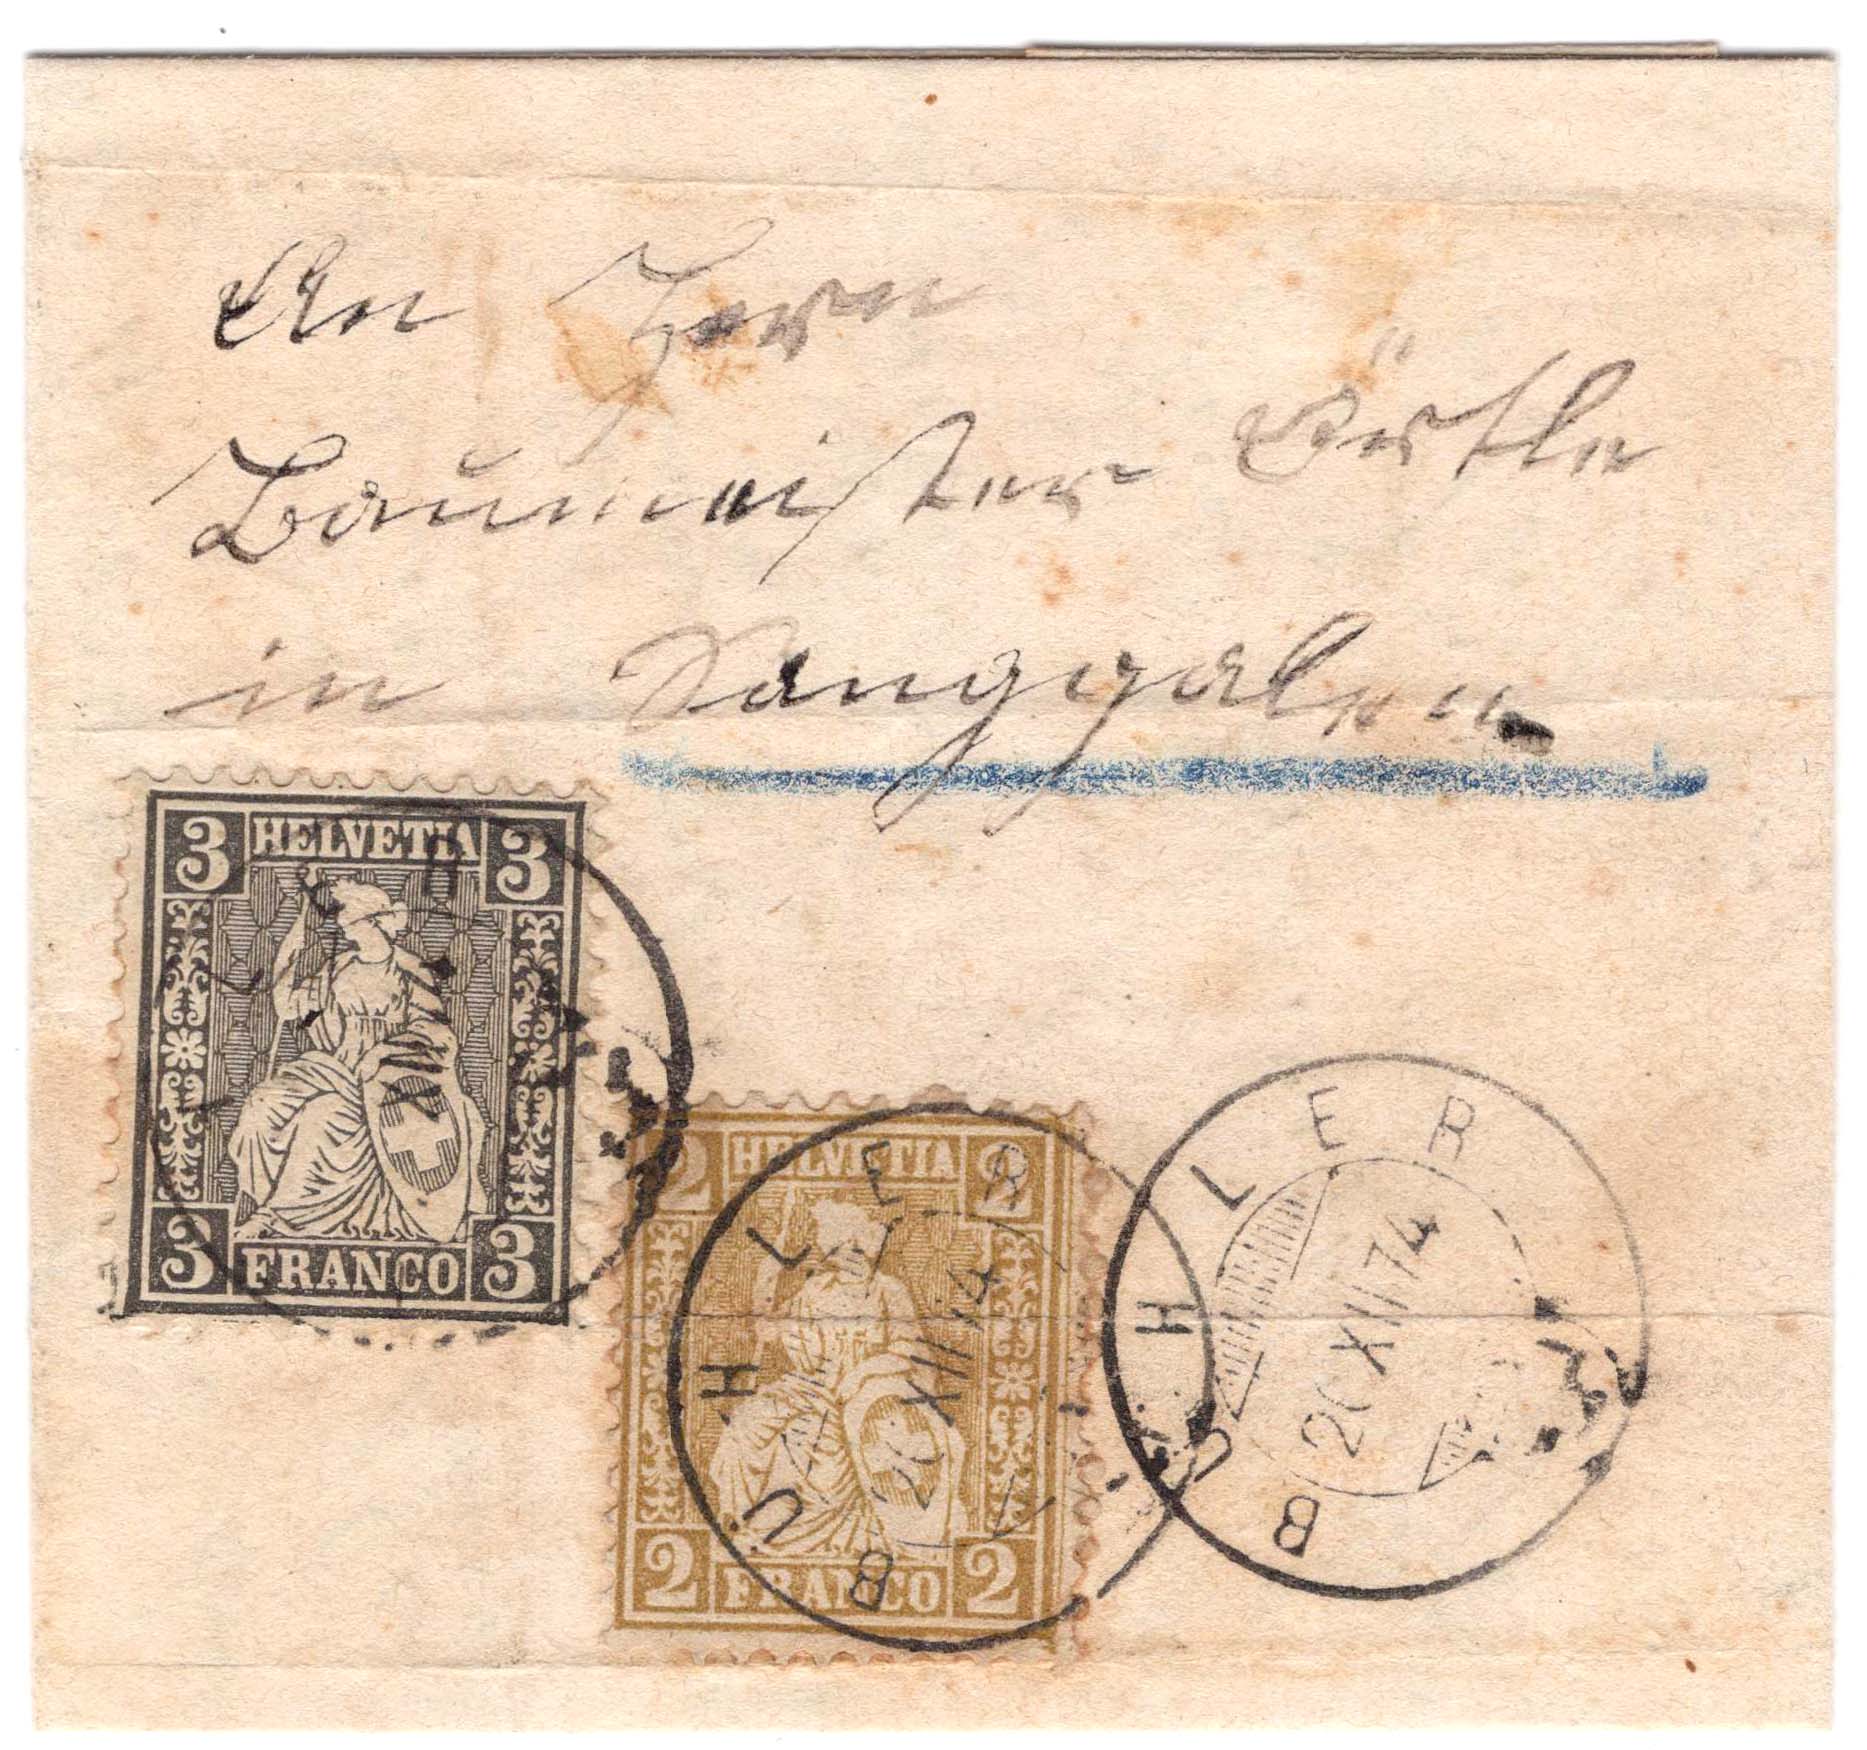 An Herrn
Baumeister Örtle
in Sanggalen
3 HELVETIA 3
3 FRANCO 3
2 HELVETIA 2
2 FRANCO 2
BÜHLER
20 XII 74
BÜHLER
20 XII 74